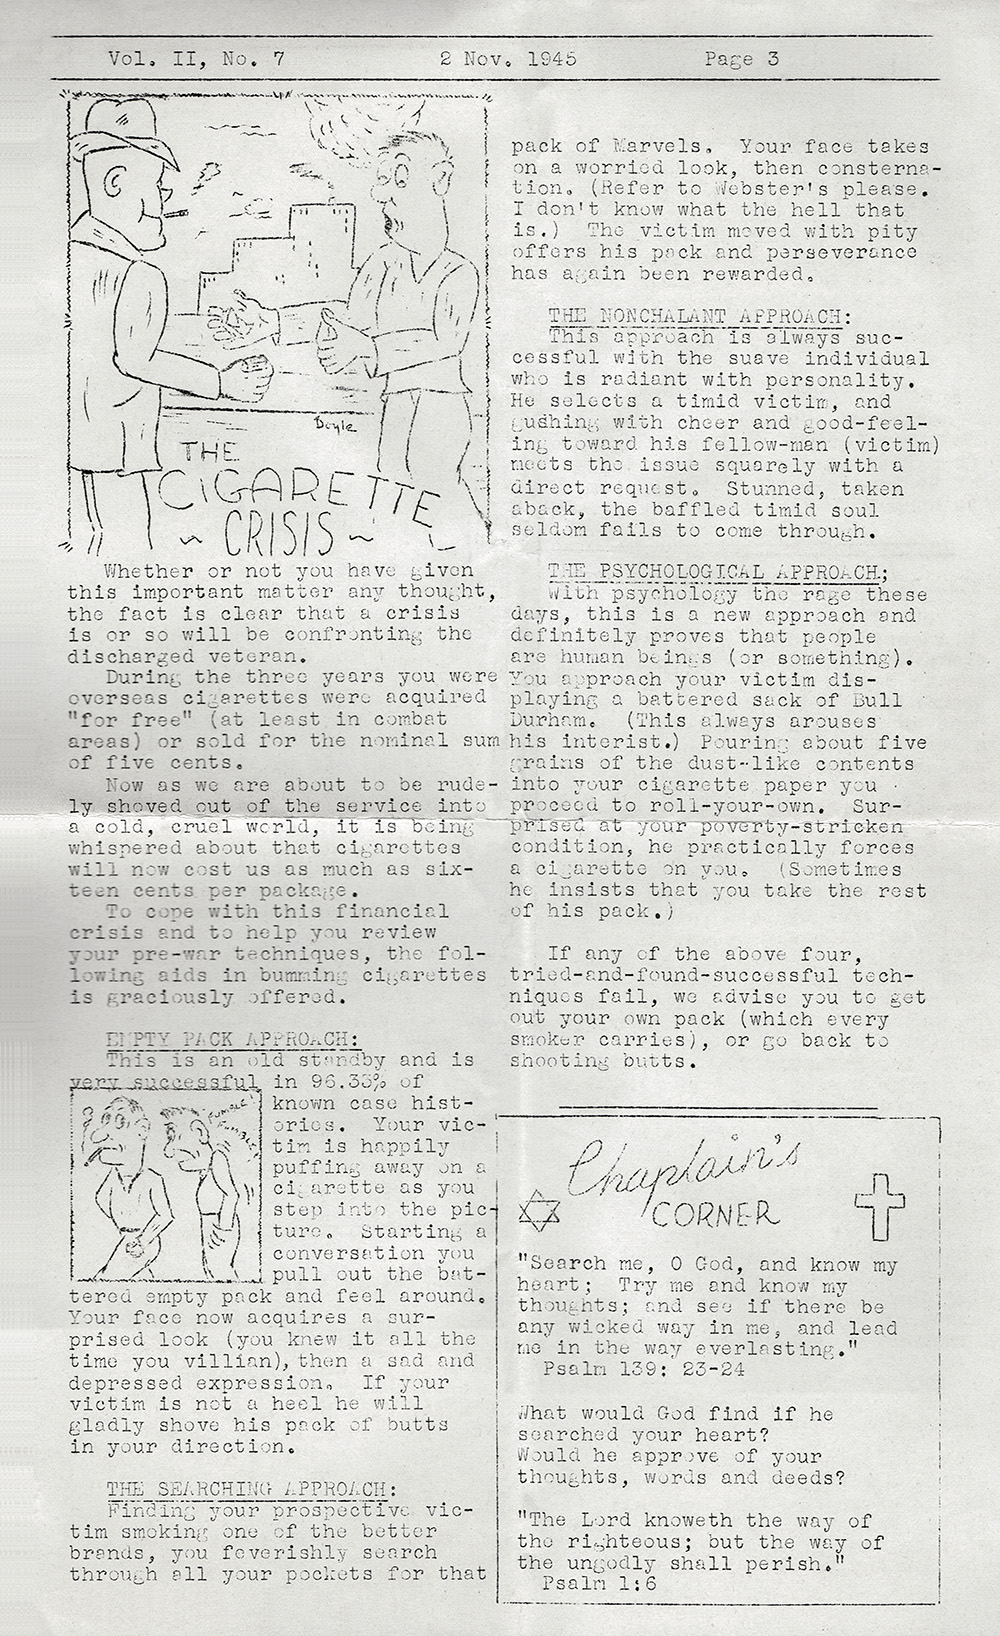 Vol. II, No. 7 2 Nov. 1945 Page 3
Doyle
THE
CIGARETTE
~ CRISIS ~
Whether or not you have given
this important matter any thought,
the fact is clear that a crisis
is or so will be confronting the
discharged veteran.
During the three years you were
overseas cigarettes were acquired
"for free" (at least in combat
areas) or sold for the nominal sum
of five cents.
Now as we are about to be rude-
ly shoved out of the service into
a cold, cruel world, it is being
whispered about that cigarettes
will now cost us as much as six-
teen cents per package.
To cope with this financial
crisis and to help you review
your pre-war techniques, the fol-
lowing aids in bumming cigarettes
is graciously offered.
EMPTY PACK APPROACH:
This is an old standby and is
very successful in 96.33% of
known case hist-
ories. Your vic-
tim is happily
puffing away on a
cigarette as you
step into the pic-
ture. Starting a
conversation you
pull out the bat-
tered empty pack and feel around.
Your face now acquires a sur-
prised look (you knew it all the
time you villian), then a sad and
depressed expression. If your
victim is not a heel he will
gladly shove his pack of butts
in your direction.
THE SEARCHING APPROACH:
Finding your prospective vic-
tim smoking one of the better
brands, you feverishly search
through all your pockets for that
pack of Marvels. Your face takes
on a worried look, then consterna-
tion. (Refer to Webster's please.
I don't know what the hell that
is.) The victim moved with pity
offers his pack and perseverance
has again been rewarded.
THE NONCHALANT APPROACH:
This approach is always suc-
cessful with the suave individual
who is radiant with personality.
He selects a timid victim, and
gushing with cheer and good-feel-
ing toward his fellow-man (victim)
meets the issue squarely with a
direct request. Stunned, taken
aback, the baffled timid soul
seldom fails to come through.
THE PSYCHOLOGICAL APPROACH;
With psychology the rage these
days, this is a new approach and
definitely proves that people
are human beings (or something).
You approach your victim dis-
playing a battered sack of Bull
Durham. (This always arouses
his interist.) Pouring about five
grains of the dust-like contents
into your cigarette paper you
proceed to roll-your-own. Sur-
prised at your poverty-stricken
condition, he practically forces
a cigarette on you. (Sometimes
he insists that you take the rest
of his pack.)
If any of the above four,
tried-and-found-successful tech-
niques fail, we advise you to get
out your own pack (which every
smoker carries), or go back to
shooting butts.
Chaplain's
CORNER
"Search me, O God, and know my
heart; Try me and know my
thoughts; and see if there be
any wicked way in me, and lead
me in the way everlasting."
Psalm 139: 23-24
What would God find if he
searched your heart?
Would he approve of your
thoughts, words and deeds?
"The Lord knoweth the way of
the righteous; but the way of
the ungodly shall perish."
Psalm 1:6